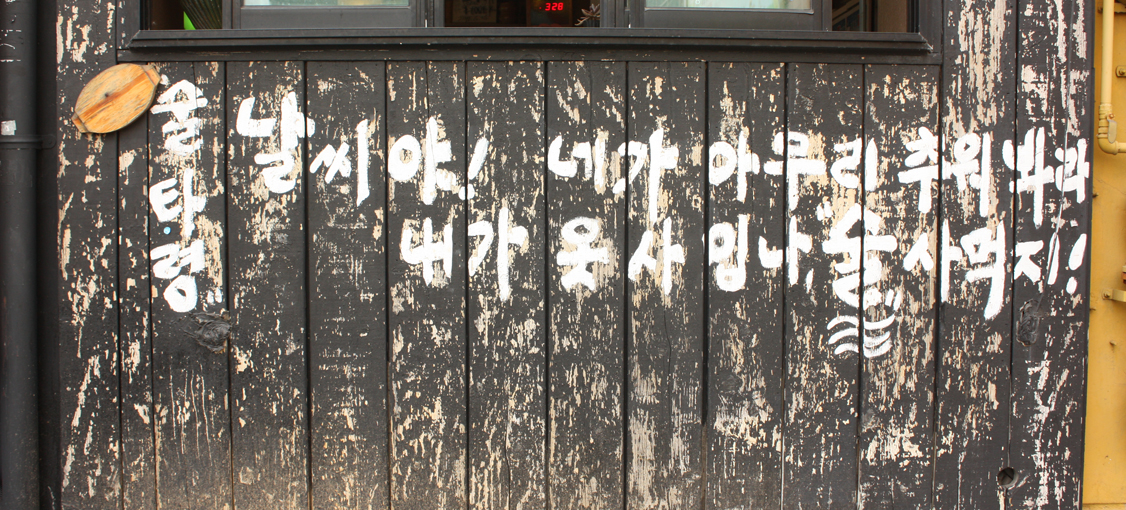 328
"술타령"
날씨야! 네가 아무리 추워 봐라
내가 옷 사 입나, "술" 사먹지!